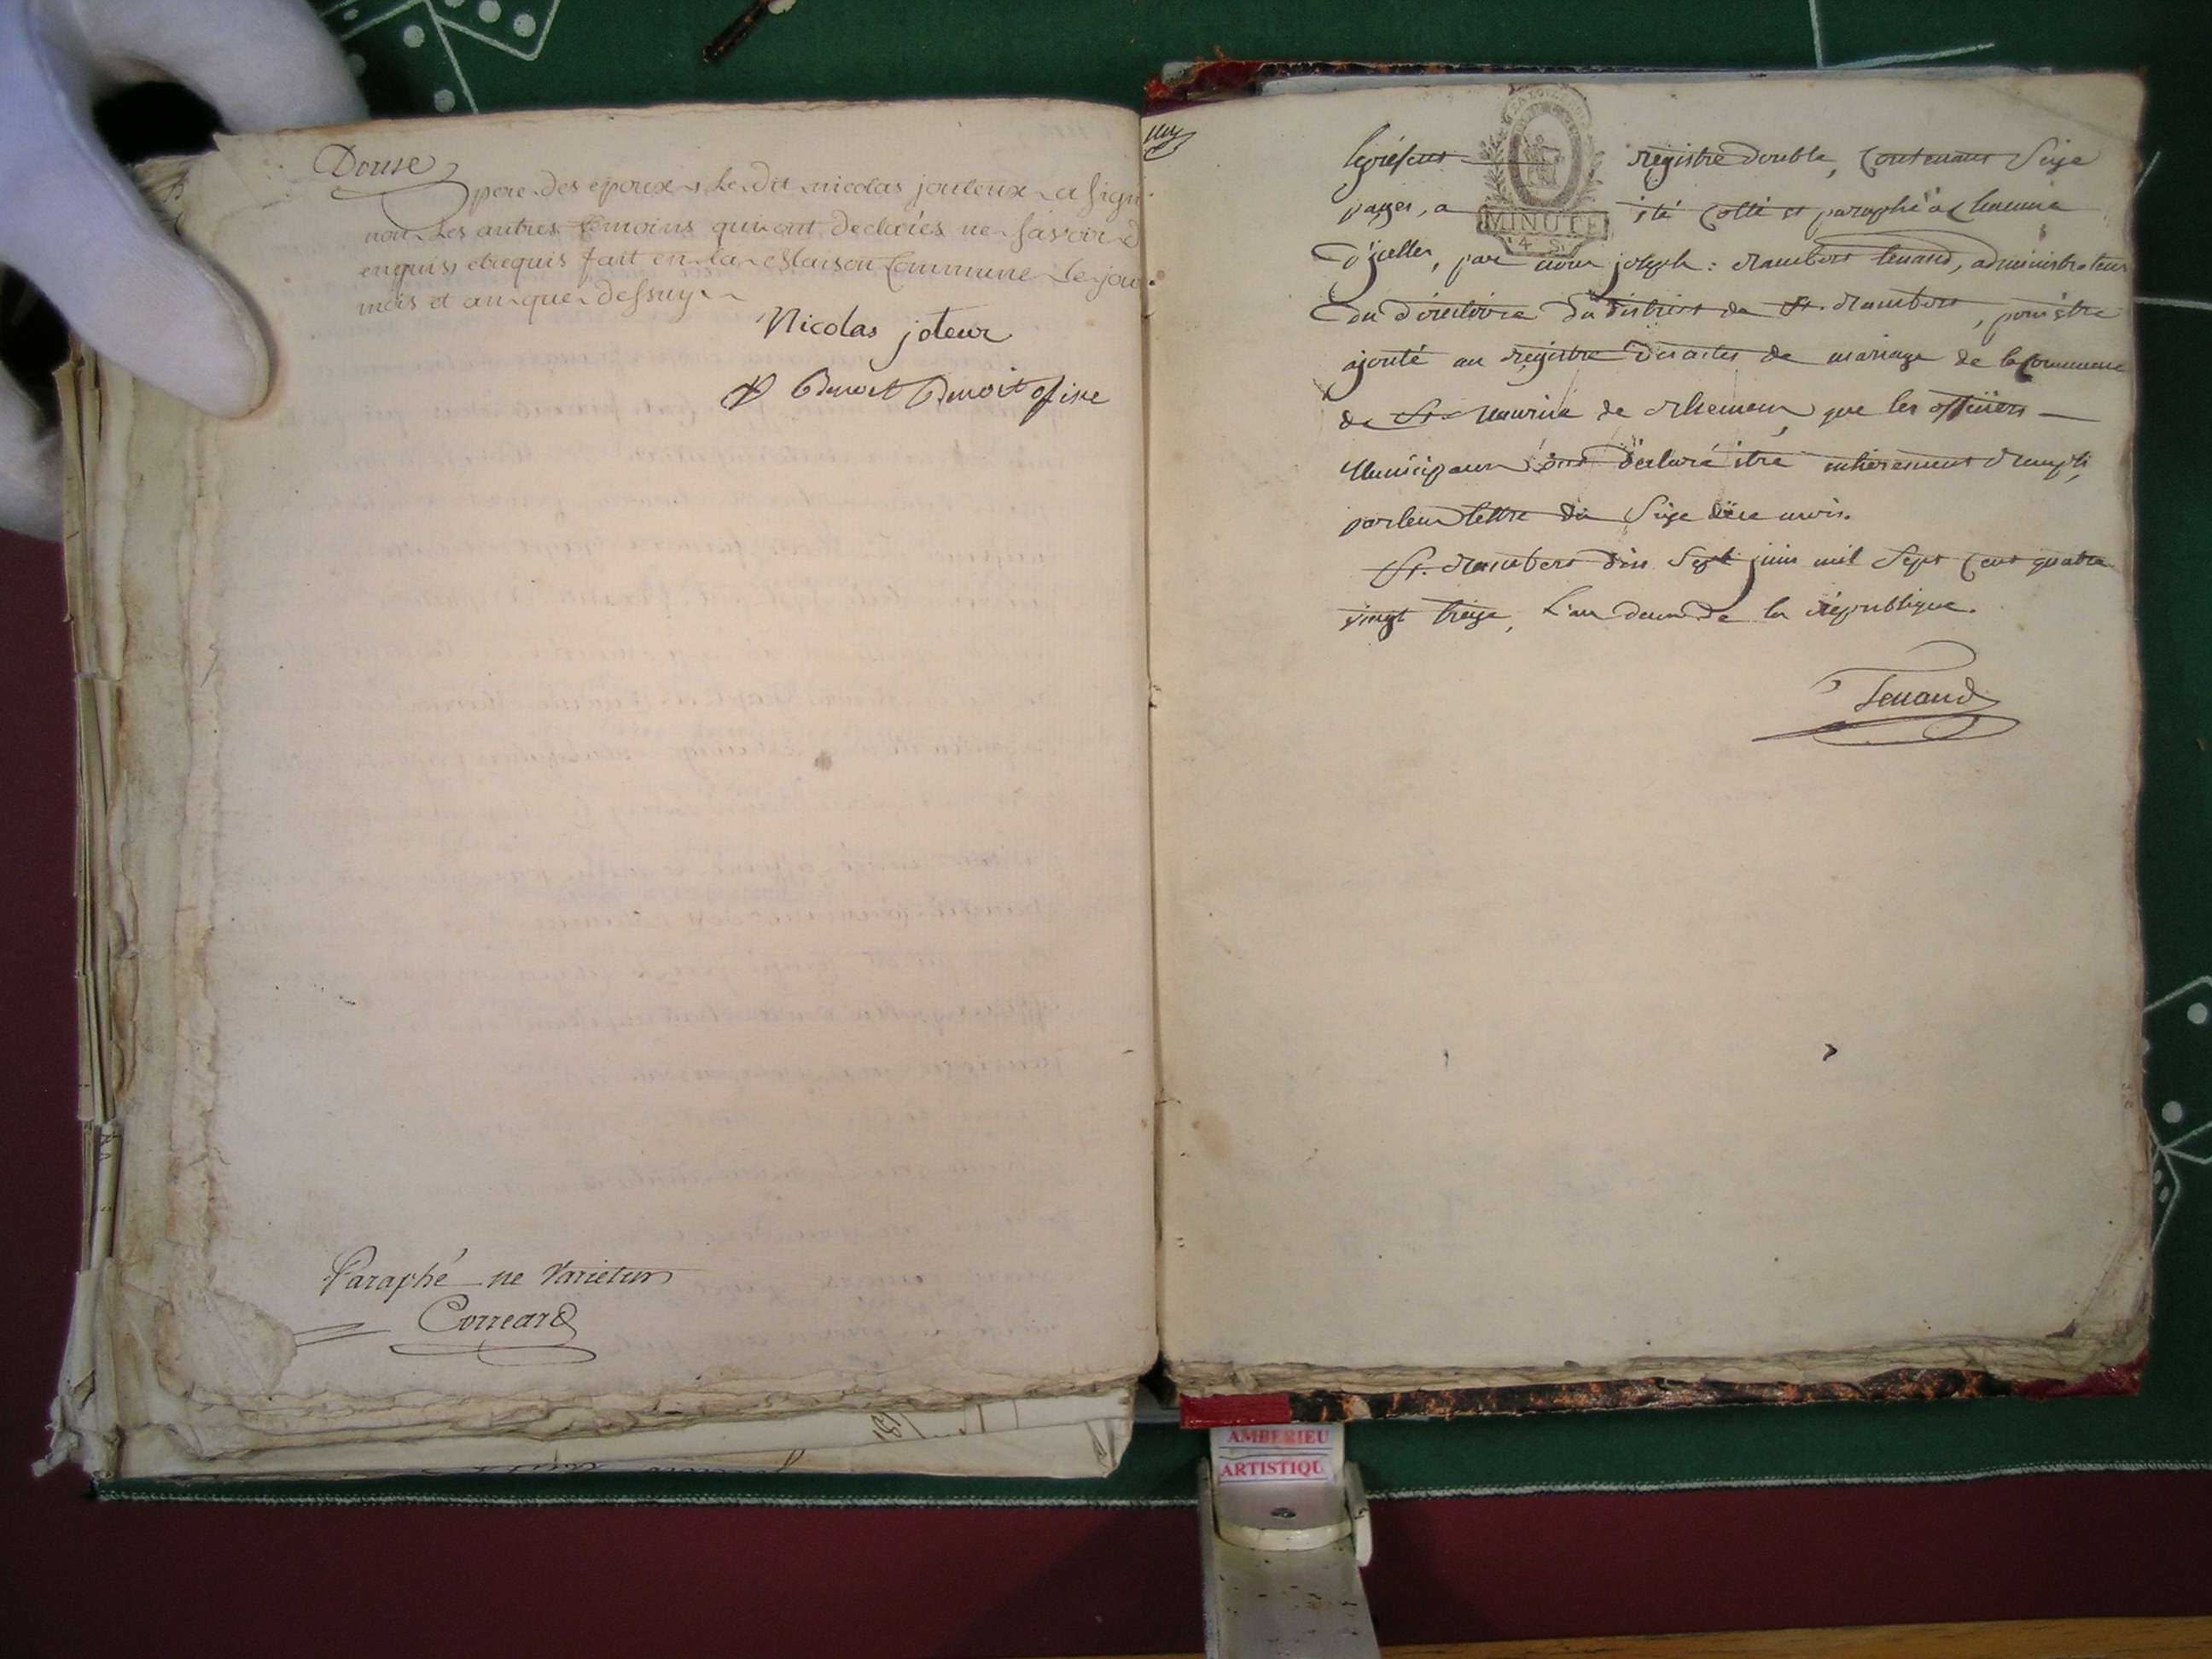 Douse
pere des epoux, ledit nicolas jouteux a signé
non les autres temoins qui ont declarés ne savoir d
enquis et requis fait en la Maison Commune le jour
mois et an que dessus
Nicolas joteur
Benoit Benoit ofise
Paraphé ne Varietur
Correard
151
le présent registre double, contenant Seize
pages, a été cotté et paraphé a chacune
d'ycelles, par nous joseph: Rambert tenand, administrateur
du directoire du district de St. Rambert, pour être
ajouté au registre des actes de mariage de la Commune
de St Maurice de Rhemens, que les officiers
Municipaux ont déclaré être entierement rempli,
par leur lettre du Seize de ce mois.
St. Rambert dix Sept juin mil Sept Cent quatre
vingt treize, L'an deux de la république.
Tenand
MINUTE
4 S.
AMBERIEU
ARTISTIQU